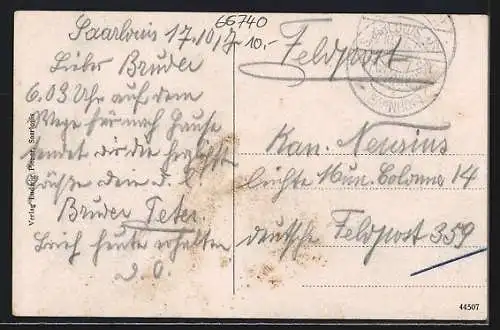 66740
10,-
Saarlouis 17.10.17
Lieber Bruder
6.03 Uhr auf dem
Wege hier nach Hause
sendet dir die herzlichst
Grüße dein d. l.
Bruder Peter.
Brief heute erhalten
d. O.
Feldpost
Kan. Neusius
leichte Mun. Colonne 14
deutsche Feldpost 359
SAARLOUIS
Verlag Saarlouis
44507